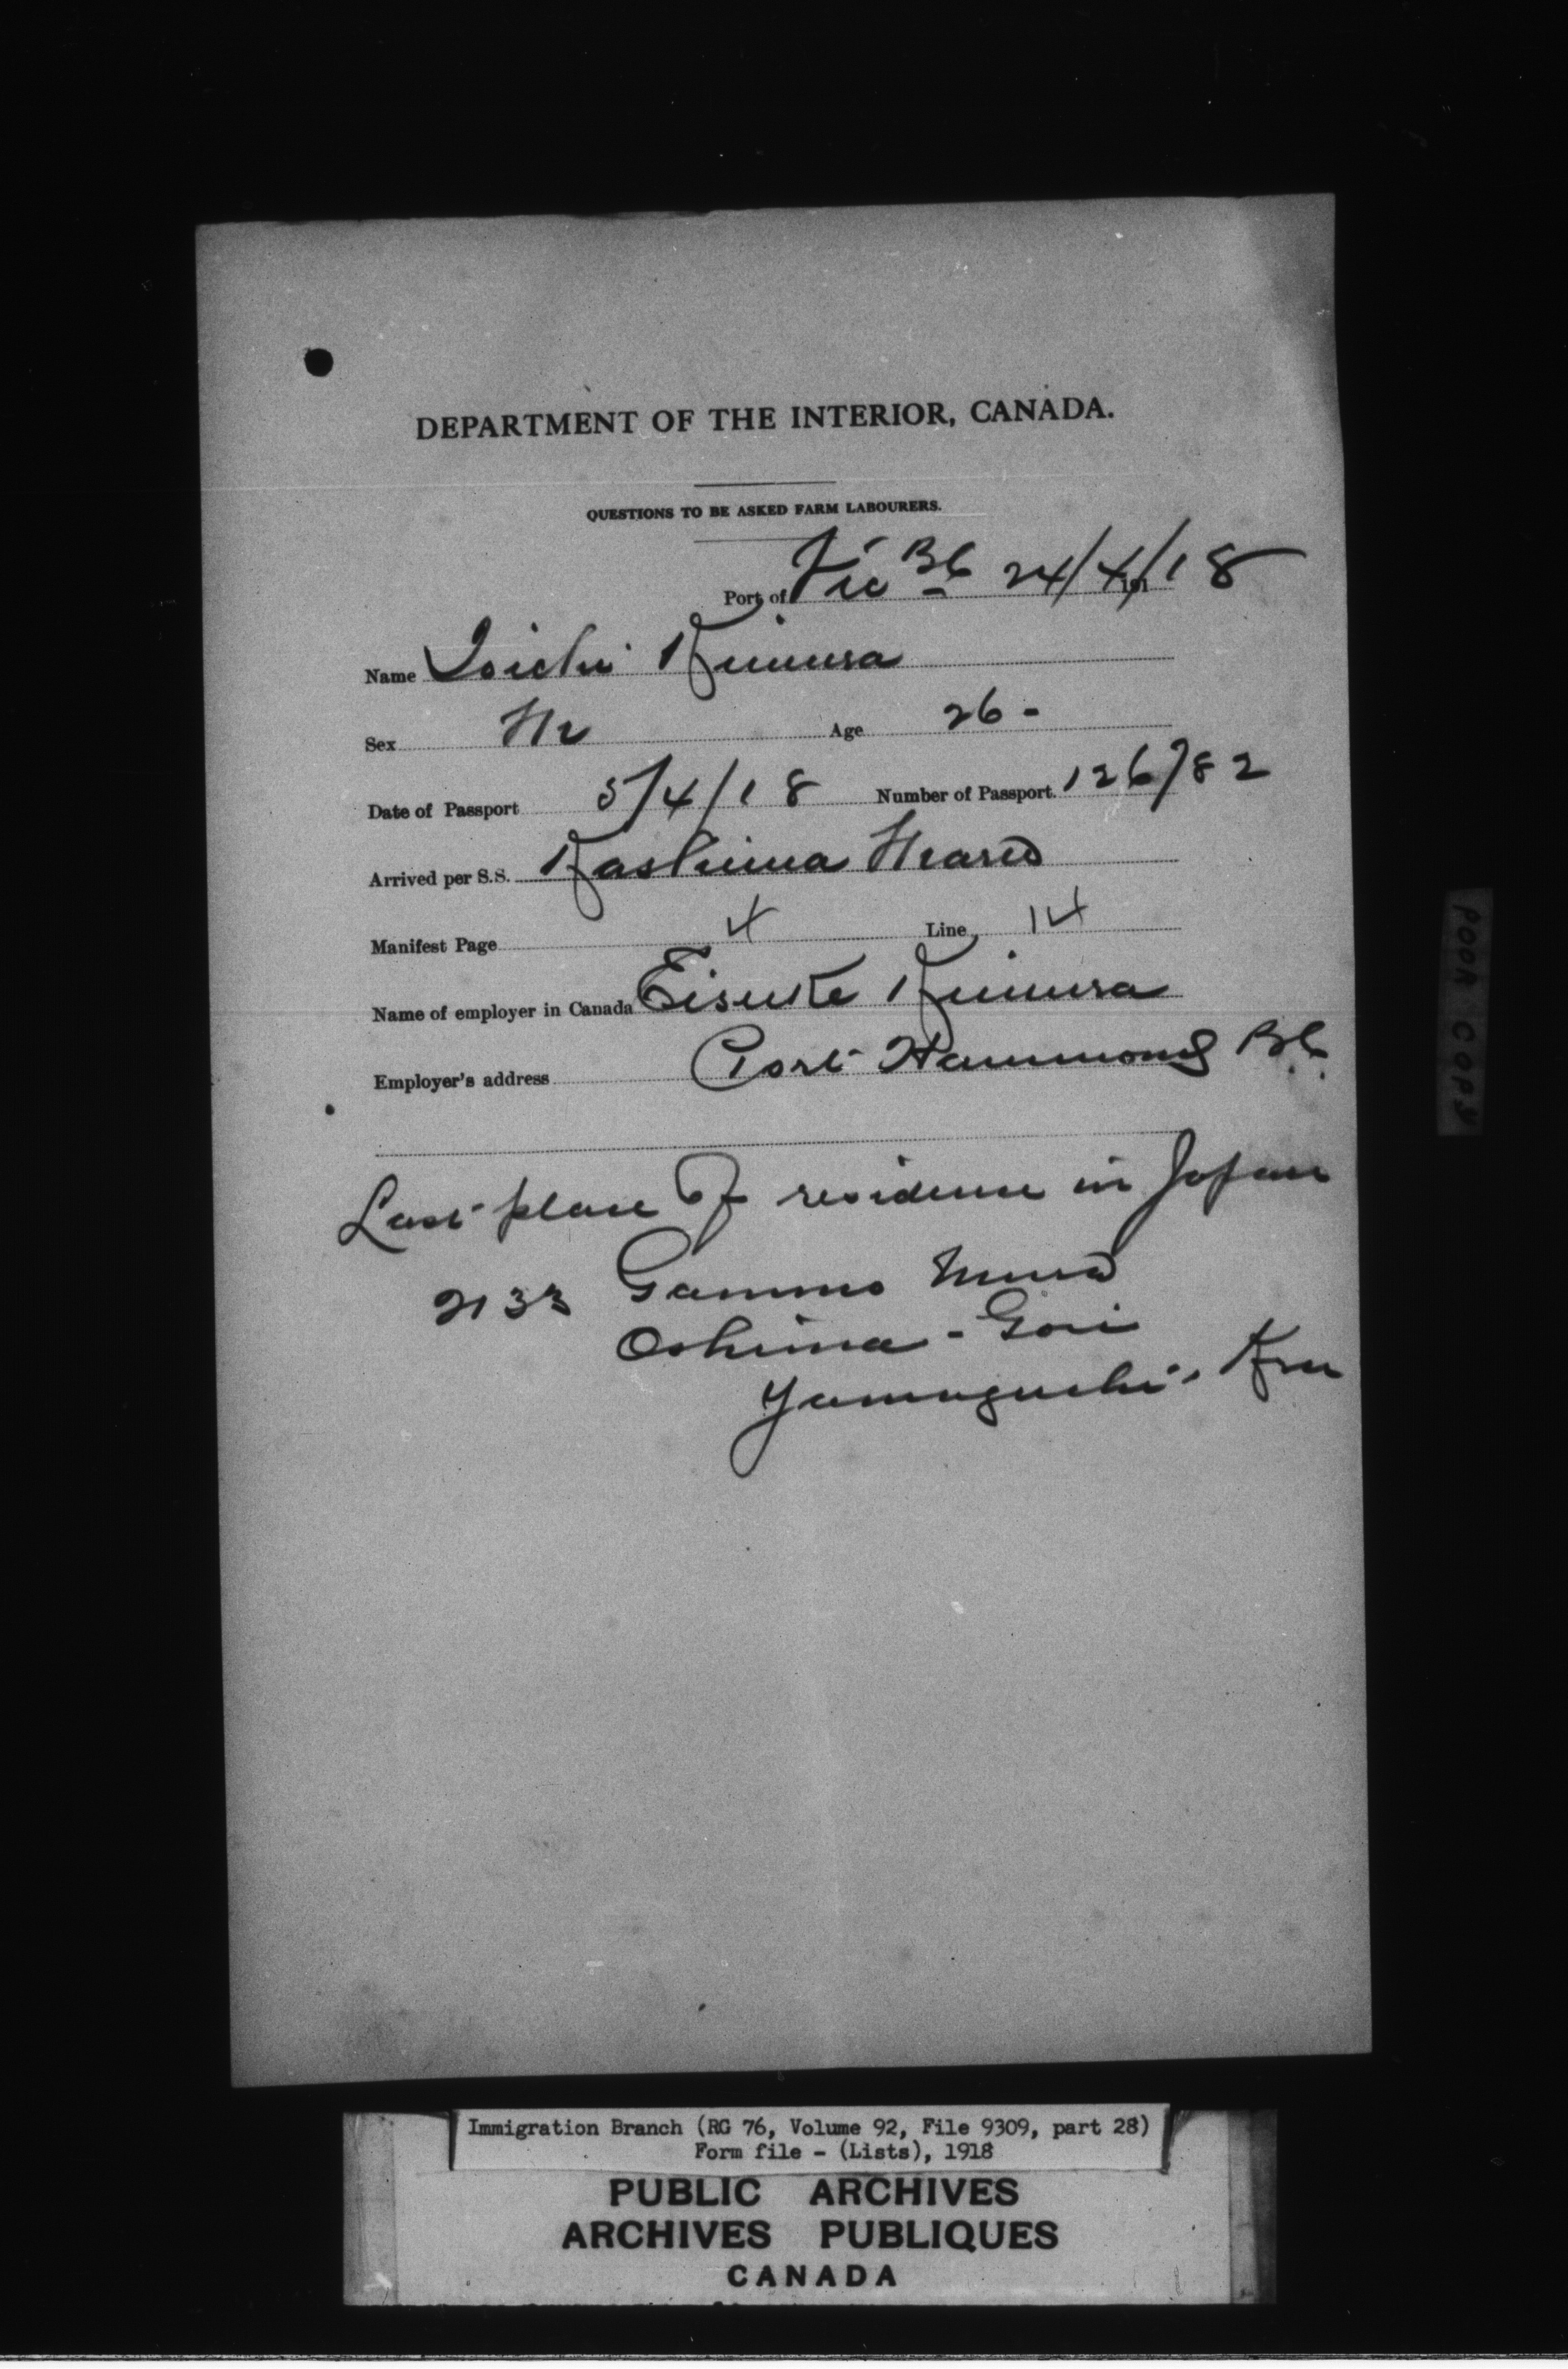 DEPARTMENT OF THE INTERIOR, CANADA.
QUESTIONS TO BE ASKED FARM LABOURERS.
Port of Vic BC 24/4/18 191
Name Ioichi Kimura
Sex M Age 26 -
Date of Passport 5/4/18 Number of Passport 126782
Arrived per S.S. Kashima Maru
Manifest Page 4 Line 14
Name of employer in Canada Eisuke Kimura
Employer's address Port Hammond B.C.
Last place of residence in Japan
2133 Gammo Mura
Oshima - Gori
Yamaguchi - Ken
POOR COPY
Immigration Branch (RG 76, Volume 92, File 9309, part 28)
Form file - (Lists), 1918
PUBLIC ARCHIVES
ARCHIVES PUBLIQUES
CANADA